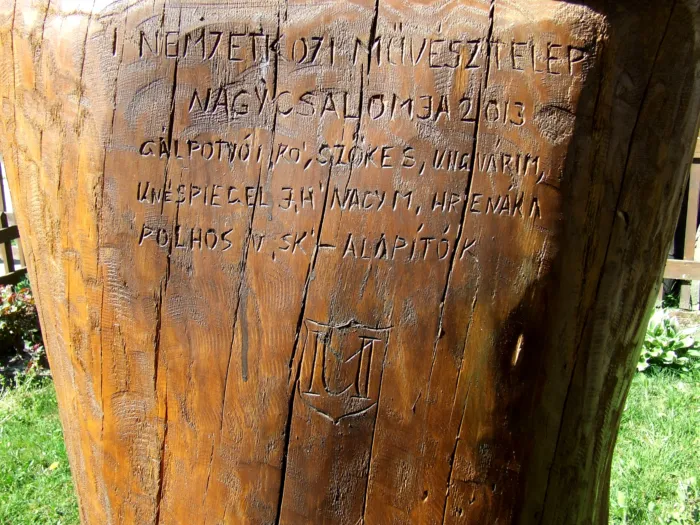 I. NEMZETKÖZI MŰVÉSZTELEP
NAGYCSALOMJA 2013
GÁLPOTYÓ I, RO', SZŐKE S, UNGVÁRI M,
H' NAGY M, HRENÁK A
POLHOS 'SK' - ALAPÍTÓK